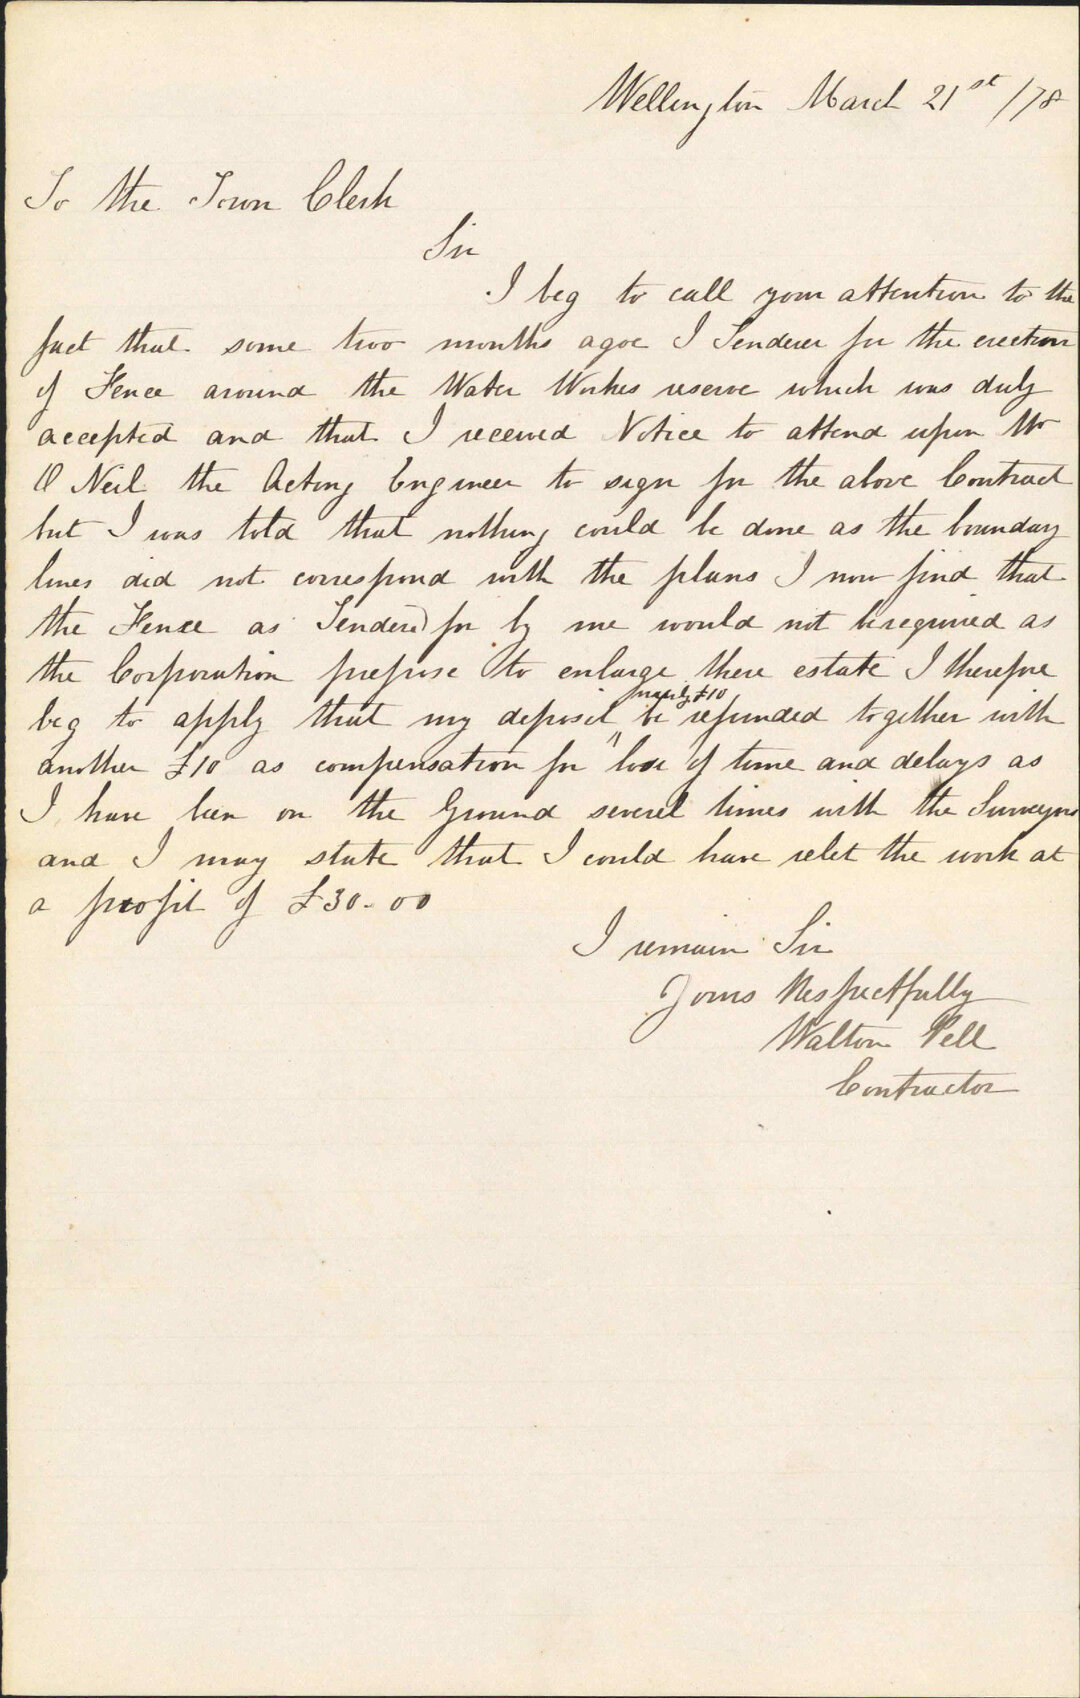 Wellington March 21st /78
To the Town Clerk
Sir
I beg to call your attention to the
fact that some two months agoe I Tenderer for the erection
of Fence around the Water Workes reserve which was duly
accepted and that I received Notice to attend upon Mr
O Neil the Acting Engineer to sign for the above Contract
but I was told that nothing could be done as the boundary
lines did not correspond with the plans I now find that
the Fence as Tendered for by me would not be required as
the Corporation prepose to enlarge there estate I therefore
nearly £10
beg to apply that my deposit be refunded together with
another £10 as compensation for lose of time and delays as
I have been on the Ground several times with the Surveyor
and I may state that I could have relet the work at
a profit of £30-00
I remain Sir
Yours Respectfully
Walton Pell
Contractor